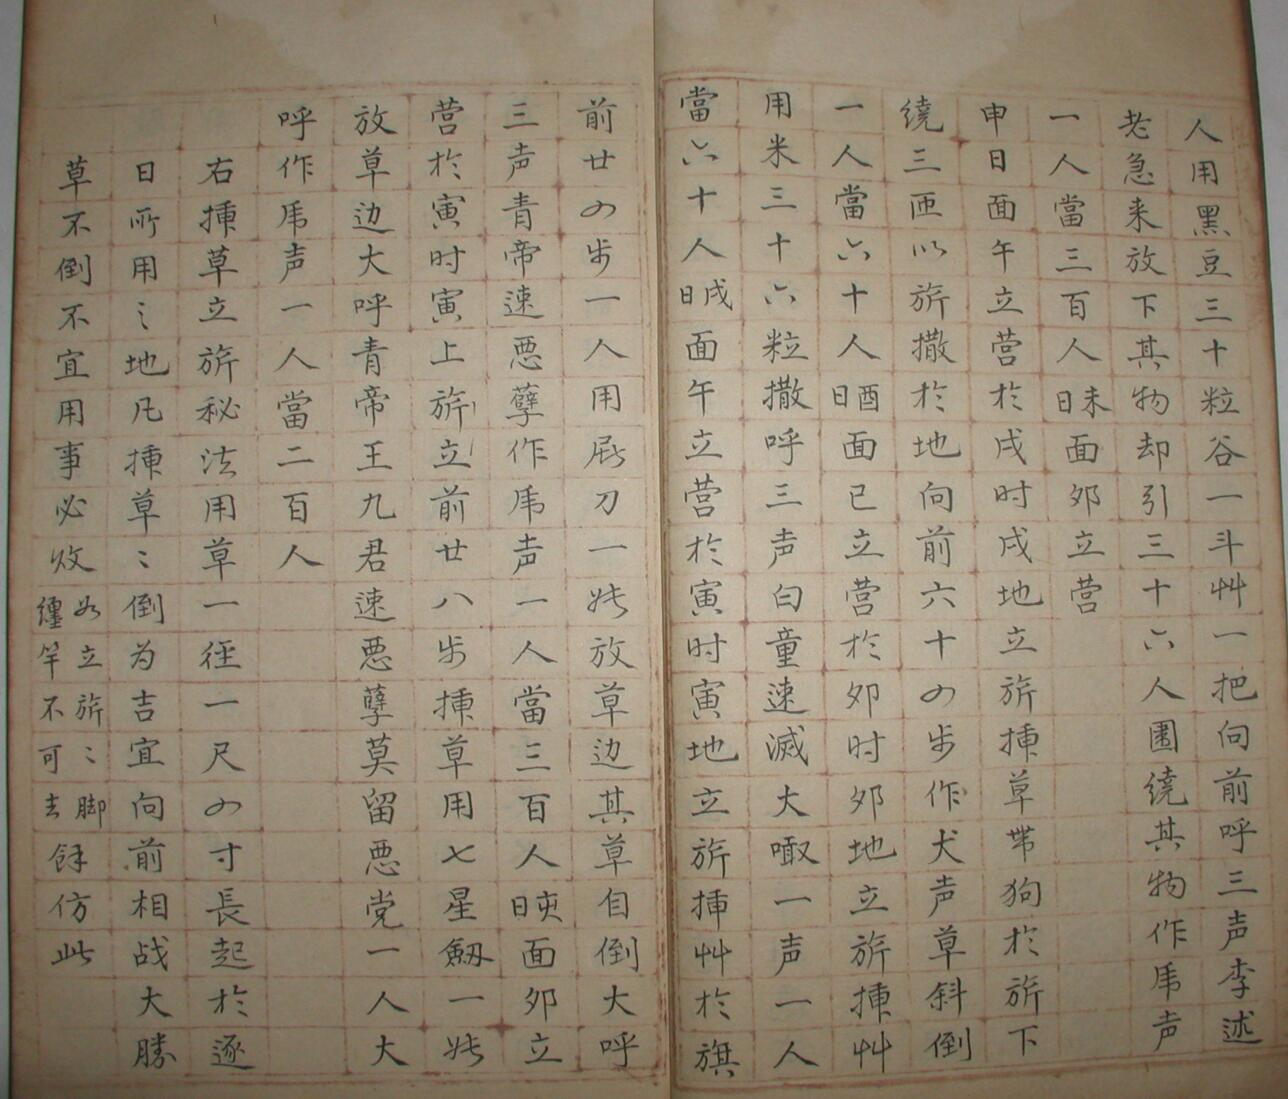 人用黑豆三十粒谷一斗艸一把向前呼三声李述
老急来放下其物却引三十六人圍绕其物作乕声
一人當三百人日未面夘立营
申日面午立营於戌时戌地立旂揷草带狗於旂下
绕三匝以旂撒於地向前六十四步作犬声草斜倒
一人當六十人日酉面巳立营於夘时夘地立旂揷艸
用米三十六粒撒呼三声白童速滅大噉一声一人
當六十人日戌面午立营於寅时寅地立旂揷艸於旗
前廿四步一人用屍刀一把放草边其草自倒大呼
三声青帝速恶孽作乕声一人當三百人日亥面夘立
营於寅时寅上旂立前廿八步揷草用七星劒一把
放草边大呼青帝王九君速恶孽莫留恶党一人大
呼作乕声一人當二百人
右揷草立旂秘法用草一徑一尺四寸長起於逐
日所用之地凡揷草〻倒为吉宜向前相战大勝
草不倒不宜用事必败
如立旂〻脚
缠竿不可去
餘仿此